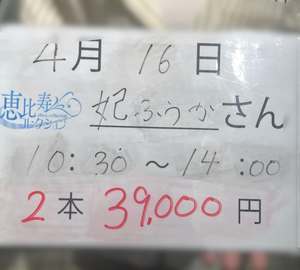 4月16日
恵比寿
コレクション
妃ふうかさん
10:30〜14:00
2本 39,000円